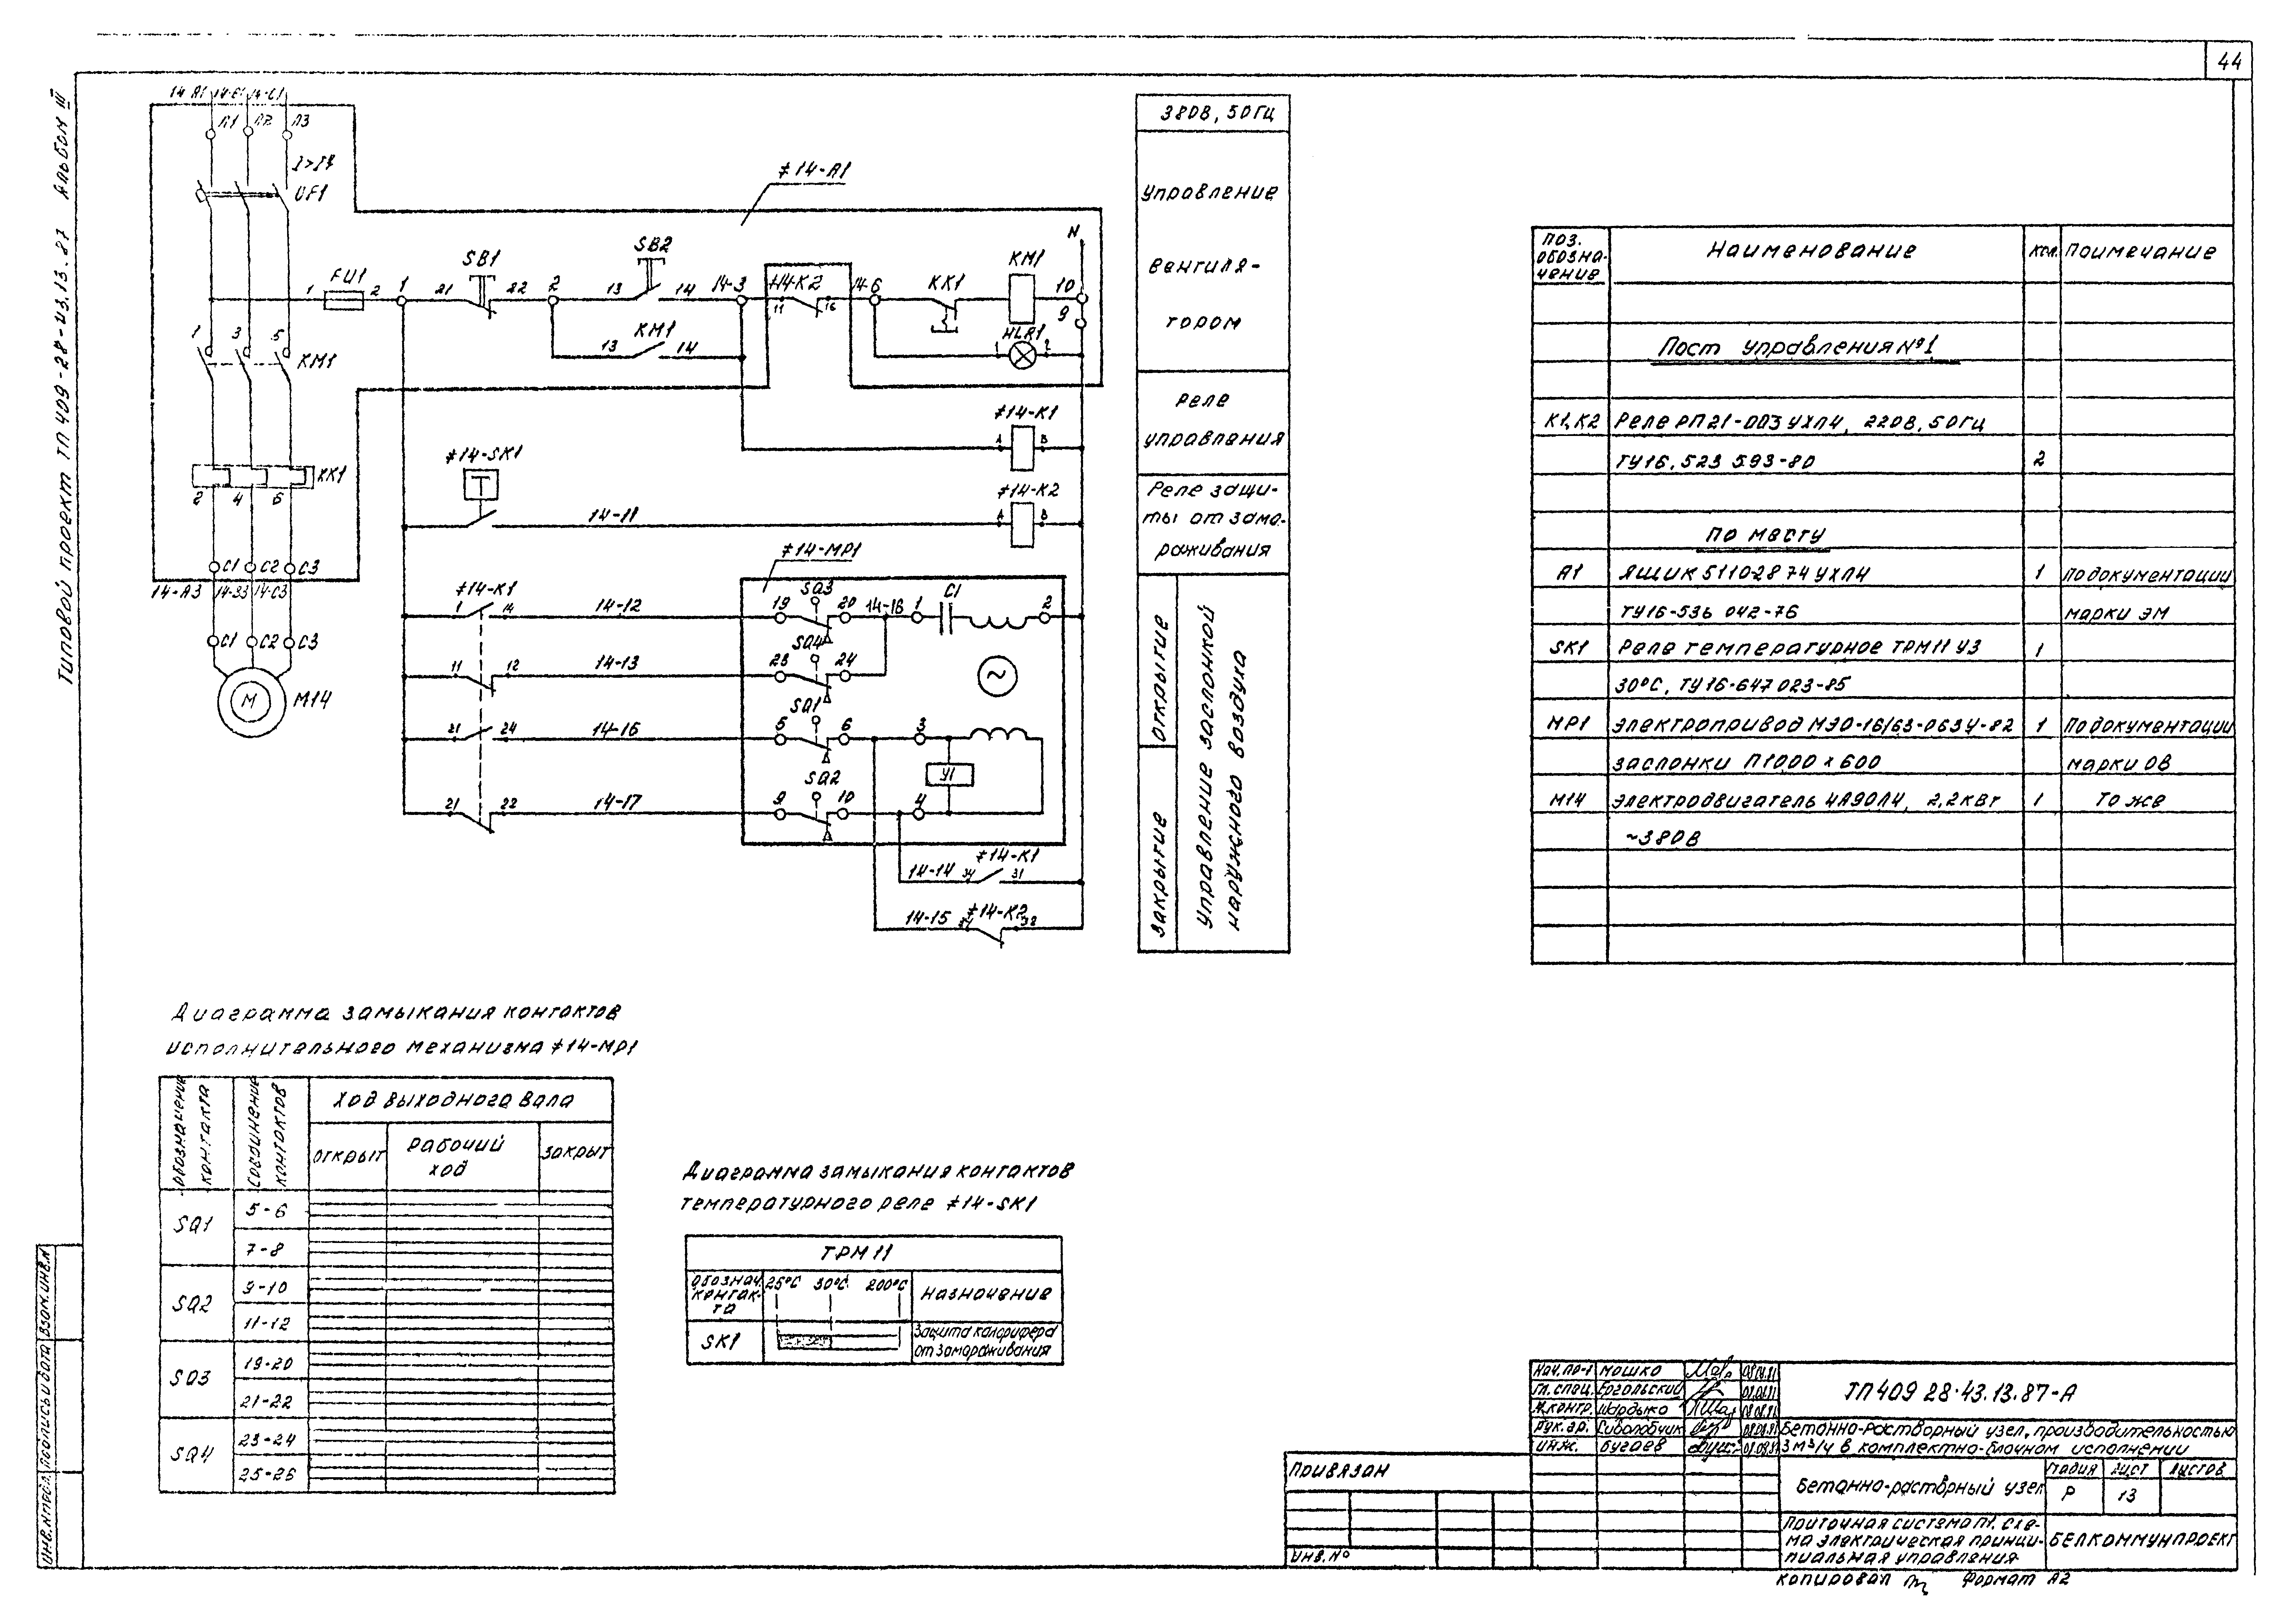 44
Типовой проект ТП 409-28-43.13.87 Альбом III
14-А1 14-В1 14-С1
Л1 Л2 Л3
I>I4
UF1
≠14-А1
FU1
SB1
SB2
≠14-К2
КК1
КМ1
N
1 2 1 21 22 2 13 14 14-3 11 16 14-6 10
9
КМ1
13 14
HLR1
1 2
1 3 5
КМ1
КК1
2 4 6
С1 С2 С3
14-А3 14-В3 14-С3
С1 С2 С3
М
М14
≠14-К1
А В
≠14-SK1
Т
14-11
≠14-К2
А В
≠14-МР1
≠14-К1
1 14 14-12 19 SQ3 20 14-18 1 С1 2
11 12 14-13 23 SQ4 24
~
21 24 14-16 5 SQ1 6 3
У1
21 22 14-17 9 SQ2 10 4
≠14-К1
14-14 34 31
≠14-К2
14-15
380В, 50Гц
Управление
вентиля-
тором
Реле
управления
Реле защи-
ты от замо-
раживания
Открытие
Закрытие
Управление заслонкой
наружного воздуха
Поз.
обозна-
чение
Наименование
Кол.
Примечание
Пост управления №1
К1, К2 Реле РП21-003 УХЛ4, 220В, 50Гц
ТУ16.523 593-80 2
По месту
А1 Ящик 5110-2874 УХЛ4 1 По документации
ТУ16-536 042-76 марки ЭМ
SK1 Реле температурное ТРМ11 У3 1
30°С, ТУ16-647 023-85
МР1 Электропривод МЭО-16/63-063У-82 1 По документации
заслонки П1000 х 600 марки ОВ
М14 Электродвигатель 4А90Л4, 2,2кВт 1 То же
~380В
Диаграмма замыкания контактов
исполнительного механизма ≠14-МР1
Обозначение контакта
Соединение контактов
Ход выходного вала
открыт
рабочий
ход
закрыт
SQ1
5-6
7-8
SQ2
9-10
11-12
SQ3
19-20
21-22
SQ4
23-24
25-26
Диаграмма замыкания контактов
температурного реле ≠14-SK1
ТРМ 11
Обознач.
контак-
та
25°С 30°С 200°С
Назначение
SK1
Защита калорифера
от замораживания
Нач.ПО-1 Мошко
Гл. спец. Ергольский
Н.контр. Шардыко
Рук. гр. Сиволобчик
Инж. Бугаев
ТП 409 28·43.13.87-А
Бетонно-растворный узел, производительностью
3 м³/ч в комплектно-блочном исполнении
Бетонно-растворный узел
Стадия Лист Листов
Р 13
Приточная система П1. Схе-
ма электрическая принци-
пиальная управления
БЕЛКОММУНПРОЕКТ
Привязан
Инв. №
Инв.№подл. Подпись и дата Взам.инв.№
Копировал Формат А2